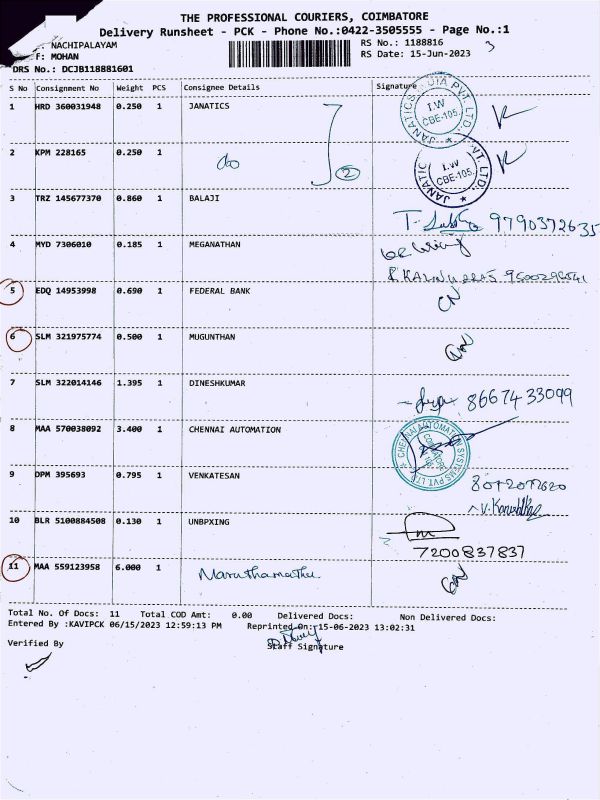 THE PROFESSIONAL COURIERS, COIMBATORE
Delivery Runsheet - PCK - Phone No.:0422-3505555 - Page No.:1
: NACHIPALAYAM
RS No.: 1188816
3
F: MOHAN
RS Date: 15-Jun-2023
DRS No.: DCJB118881601
S No Consignment No Weight PCS Consignee Details Signature
1 HRD 360031948 0.250 1 JANATICS
JANATICS INDIA PVT. LTD. I.W CBE-105.
2 KPM 228165 0.250 1 do 2
JANATICS PVT. LTD. I.W CBE-105.
3 TRZ 145677370 0.860 1 BALAJI
9790372635
4 MYD 7306010 0.185 1 MEGANATHAN
5 EDQ 14953998 0.690 1 FEDERAL BANK
6 SLM 321975774 0.500 1 MUGUNTHAN
7 SLM 322014146 1.395 1 DINESHKUMAR
8667433099
8 MAA 570038092 3.400 1 CHENNAI AUTOMATION
CHENNAI AUTOMATION SYSTEMS PVT. LTD. COIMBATORE
9 DPM 395693 0.795 1 VENKATESAN
10 BLR 5100884508 0.130 1 UNBPXING
7200837837
11 MAA 559123958 6.000 1 Maruthamathu
Total No. Of Docs: 11 Total COD Amt: 0.00 Delivered Docs: Non Delivered Docs:
Entered By :KAVIPCK 06/15/2023 12:59:13 PM Reprinted On:15-06-2023 13:02:31
Verified By Staff Signature